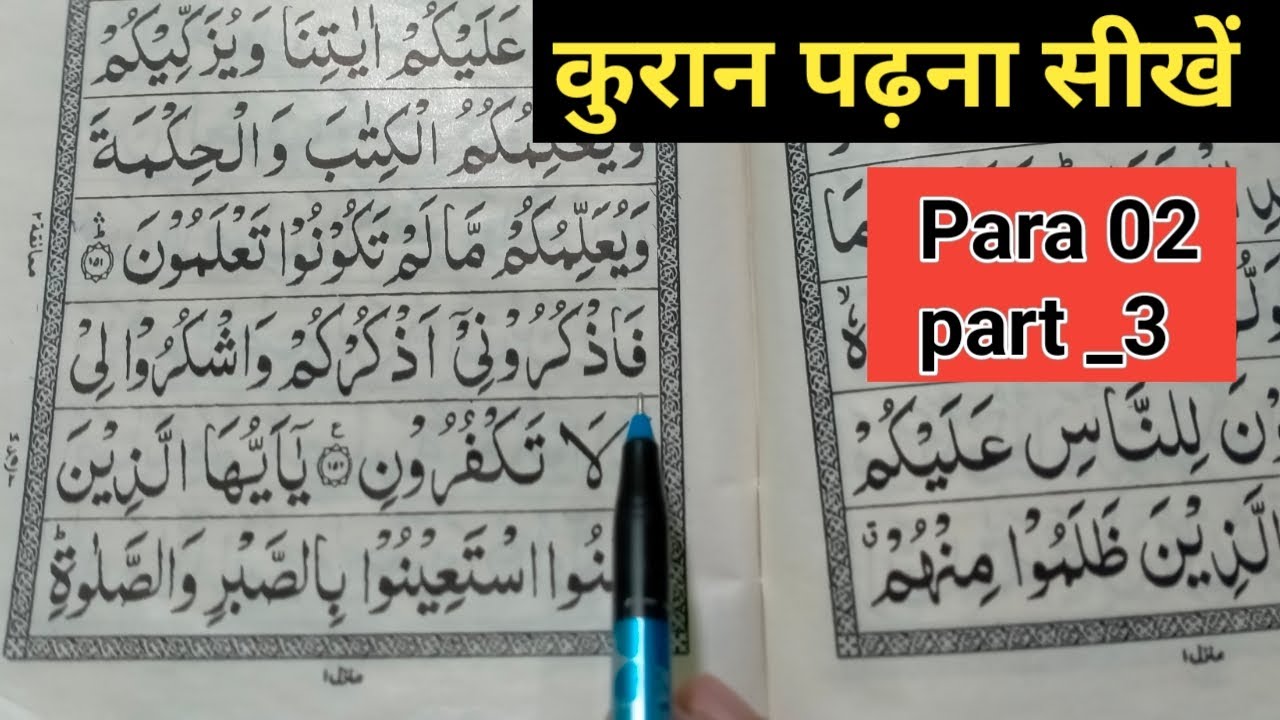 कुरान पढ़ना सीखें
Para 02
part _3
عَلَيْكُمْ اٰيٰتِنَا وَيُزَكِّيْكُمْ
وَيُعَلِّمُكُمُ الْكِتٰبَ وَالْحِكْمَةَ
وَيُعَلِّمُكُمْ مَّا لَمْ تَكُوْنُوْا تَعْلَمُوْنَ ۱۵۱
فَاذْكُرُوْنِيْۤ اَذْكُرْكُمْ وَاشْكُرُوْا لِيْ
لَا تَكْفُرُوْنِ ۱۵۲ يٰۤاَيُّهَا الَّذِيْنَ
اسْتَعِيْنُوْا بِالصَّبْرِ وَالصَّلٰوةِ ؕ
منزل۱
مَا
لِلنَّاسِ عَلَيْكُمْ
الَّذِيْنَ ظَلَمُوْا مِنْهُمْ ۗ
منزل۱